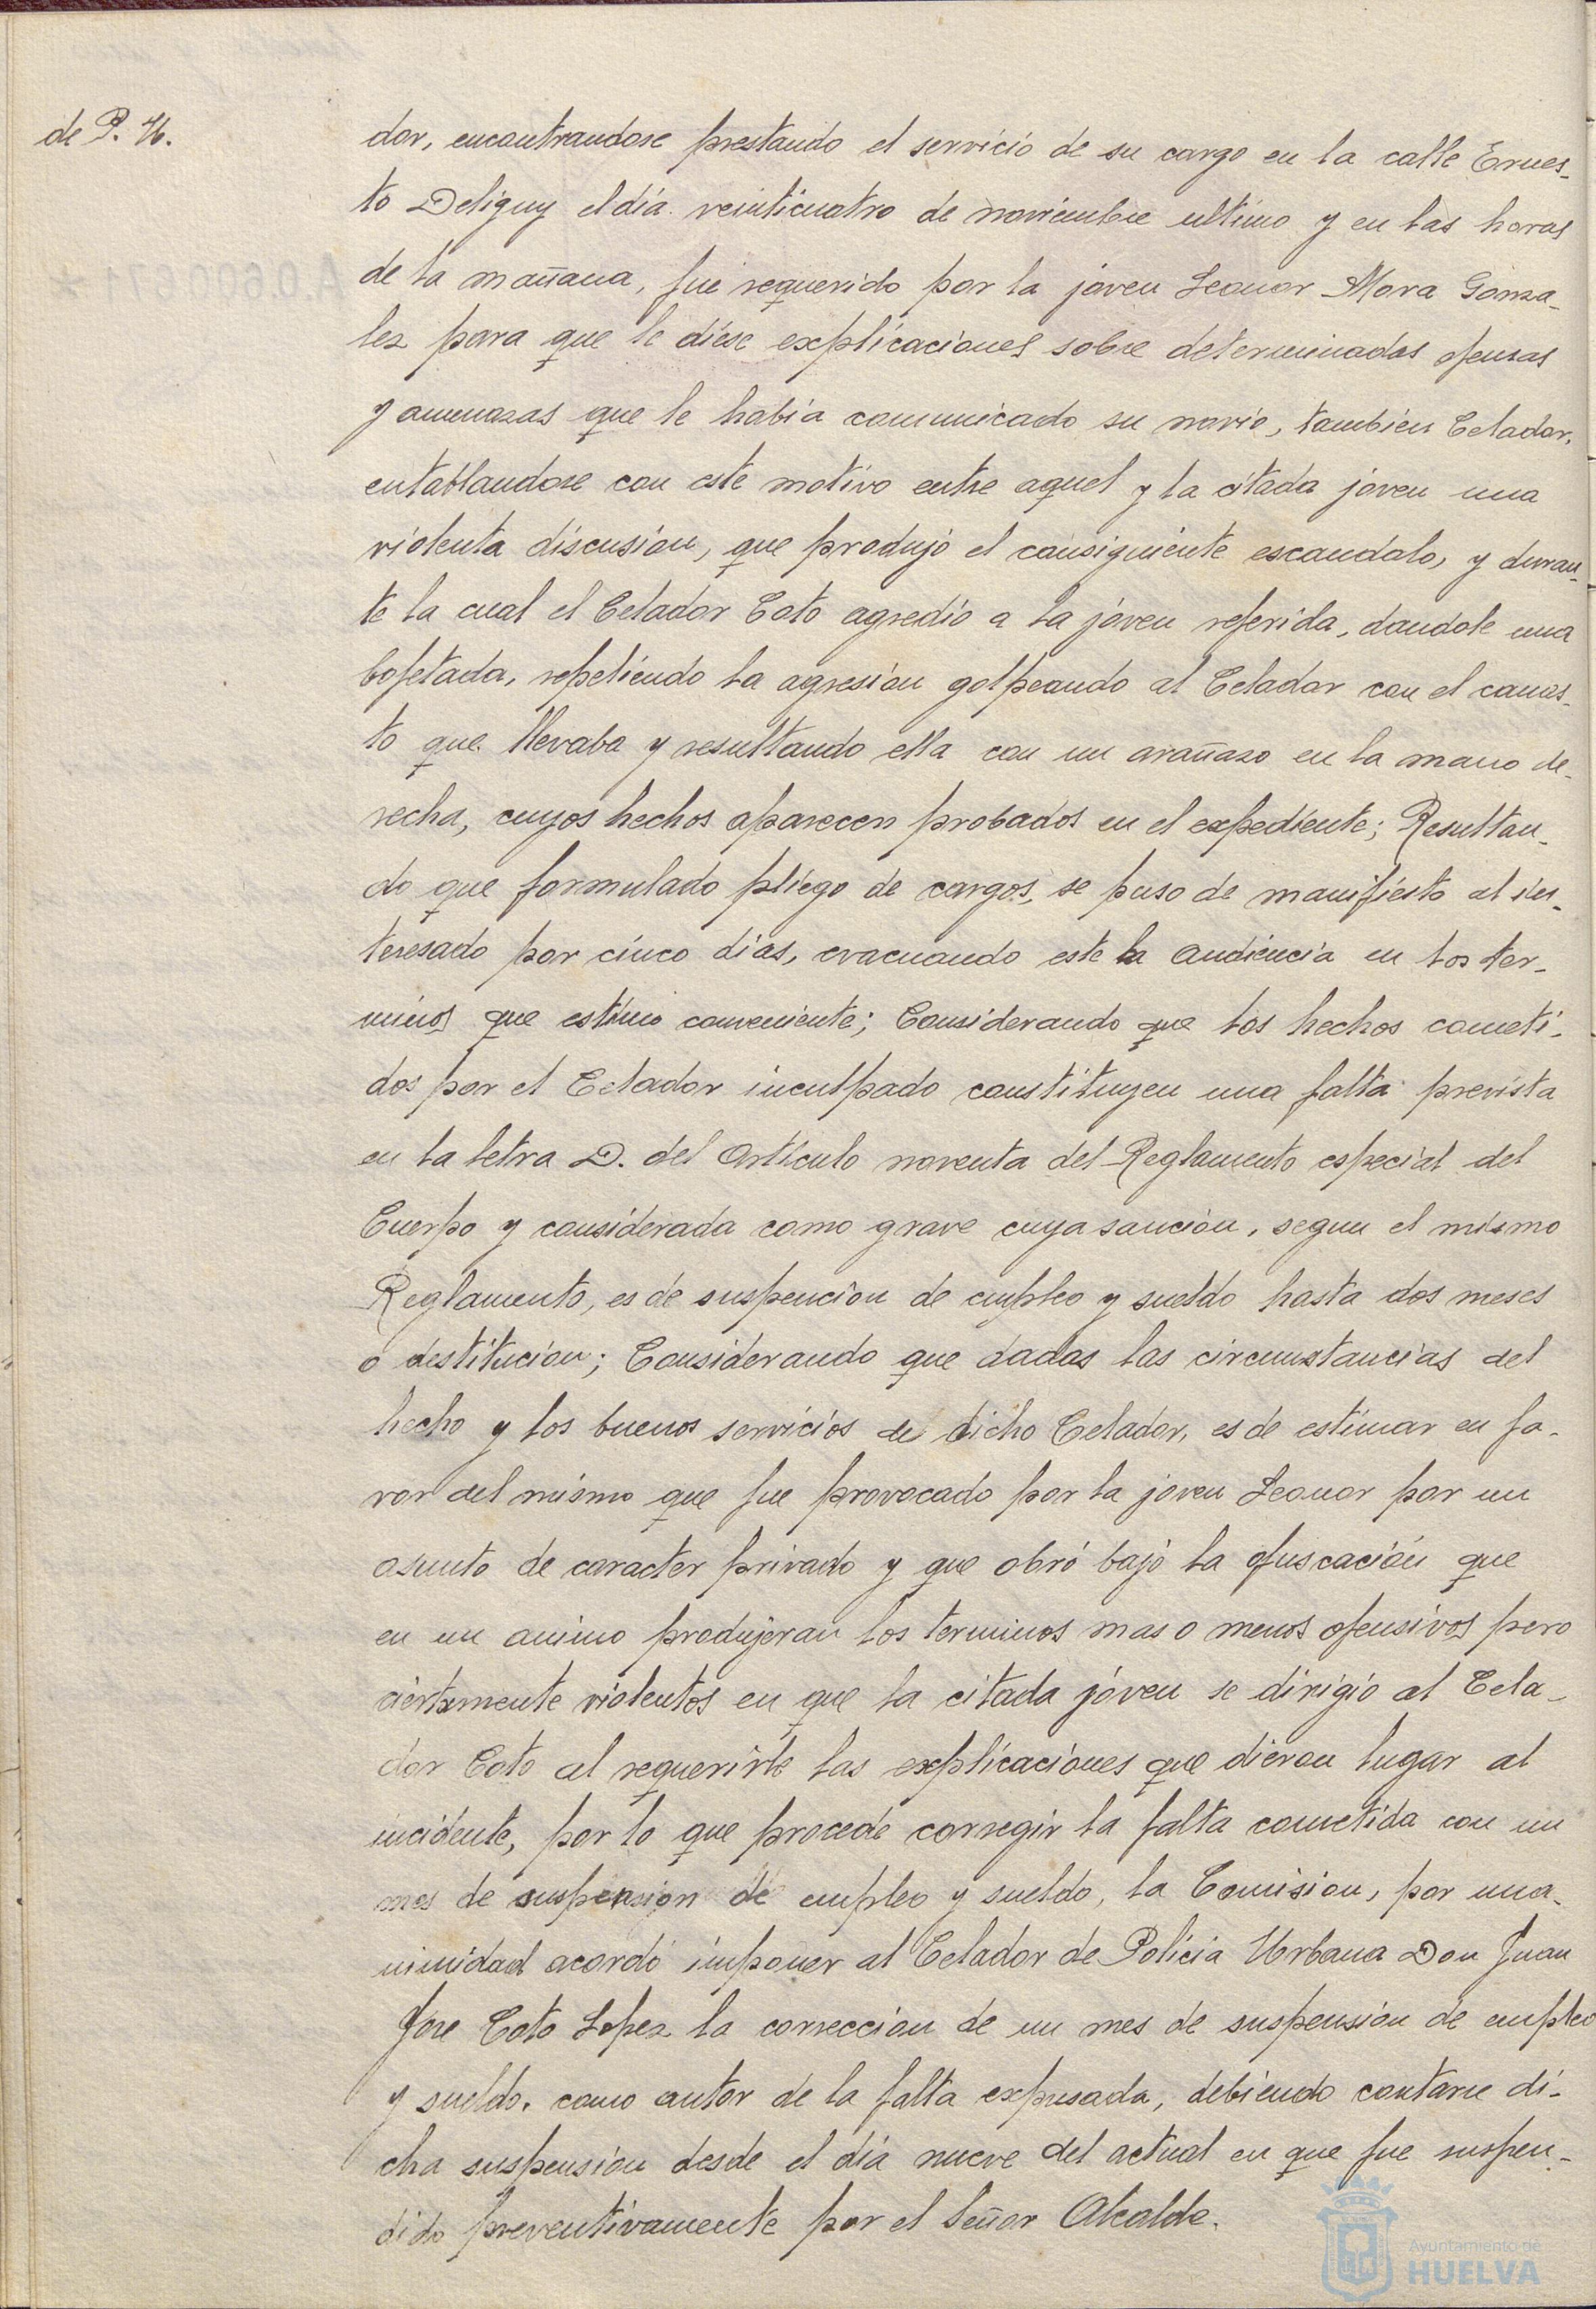 de P. U.
dor, encontrandose prestando el servicio de su cargo en la calle Ernes-
to Deligny el día veinticuatro de noviembre ultimo y en las horas
de la mañana, fue requerido por la joven Leonor Mora Gonza-
lez para que le diese explicaciones sobre determinadas ofensas
y amenazas que le habia comunicado su novio, tambien Celador,
entablandose con este motivo entre aquel y la citada joven una
violenta discusion, que produjo el consiguiente escandalo, y duran-
te la cual el Celador Coto agredio a la joven referida, dandole una
bofetada, repeliendo la agresion golpeando al Celador con el canas-
to que llevaba y resultando ella con un arañazo en la mano de-
recha, cuyos hechos aparecen probados en el expediente; Resultan-
do que formulado pliego de cargos, se puso de manifiesto al in-
teresado por cinco dias, evacuando este la audiencia en los ter-
minos que estimo conveniente; Considerando que los hechos cometi-
dos por el Celador inculpado constituyen una falta prevista
en la letra D. del Artículo noventa del Reglamento especial del
Cuerpo y considerada como grave cuya sancion, segun el mismo
Reglamento, es de suspencion de empleo y sueldo hasta dos meses
o destitucion; Considerando que dadas las circunstancias del
hecho y los buenos servicios de dicho Celador, es de estimar en fa-
vor del mismo que fue provocado por la joven Leonor por un
asunto de caracter privado y que obró bajo la ofuscación que
en un animo produjeran los terminos mas o menos ofensivos pero
ciertamente violentos en que la citada jóven se dirigio al Cela-
dor Coto al requerirle las explicaciones que dieron lugar al
incidente, por lo que procede corregir la falta cometida con un
mes de suspension de empleo y sueldo, la Comision, por una-
nimidad acordó imponer al Celador de Policia Urbana Don Juan
Jose Coto Lopez la correccion de un mes de suspension de empleo
y sueldo, como autor de la falta expresada, debiendo contarse di-
cha suspension desde el día nueve del actual en que fue suspen-
dido preventivamente por el Señor Alcalde.
Ayuntamiento de
HUELVA